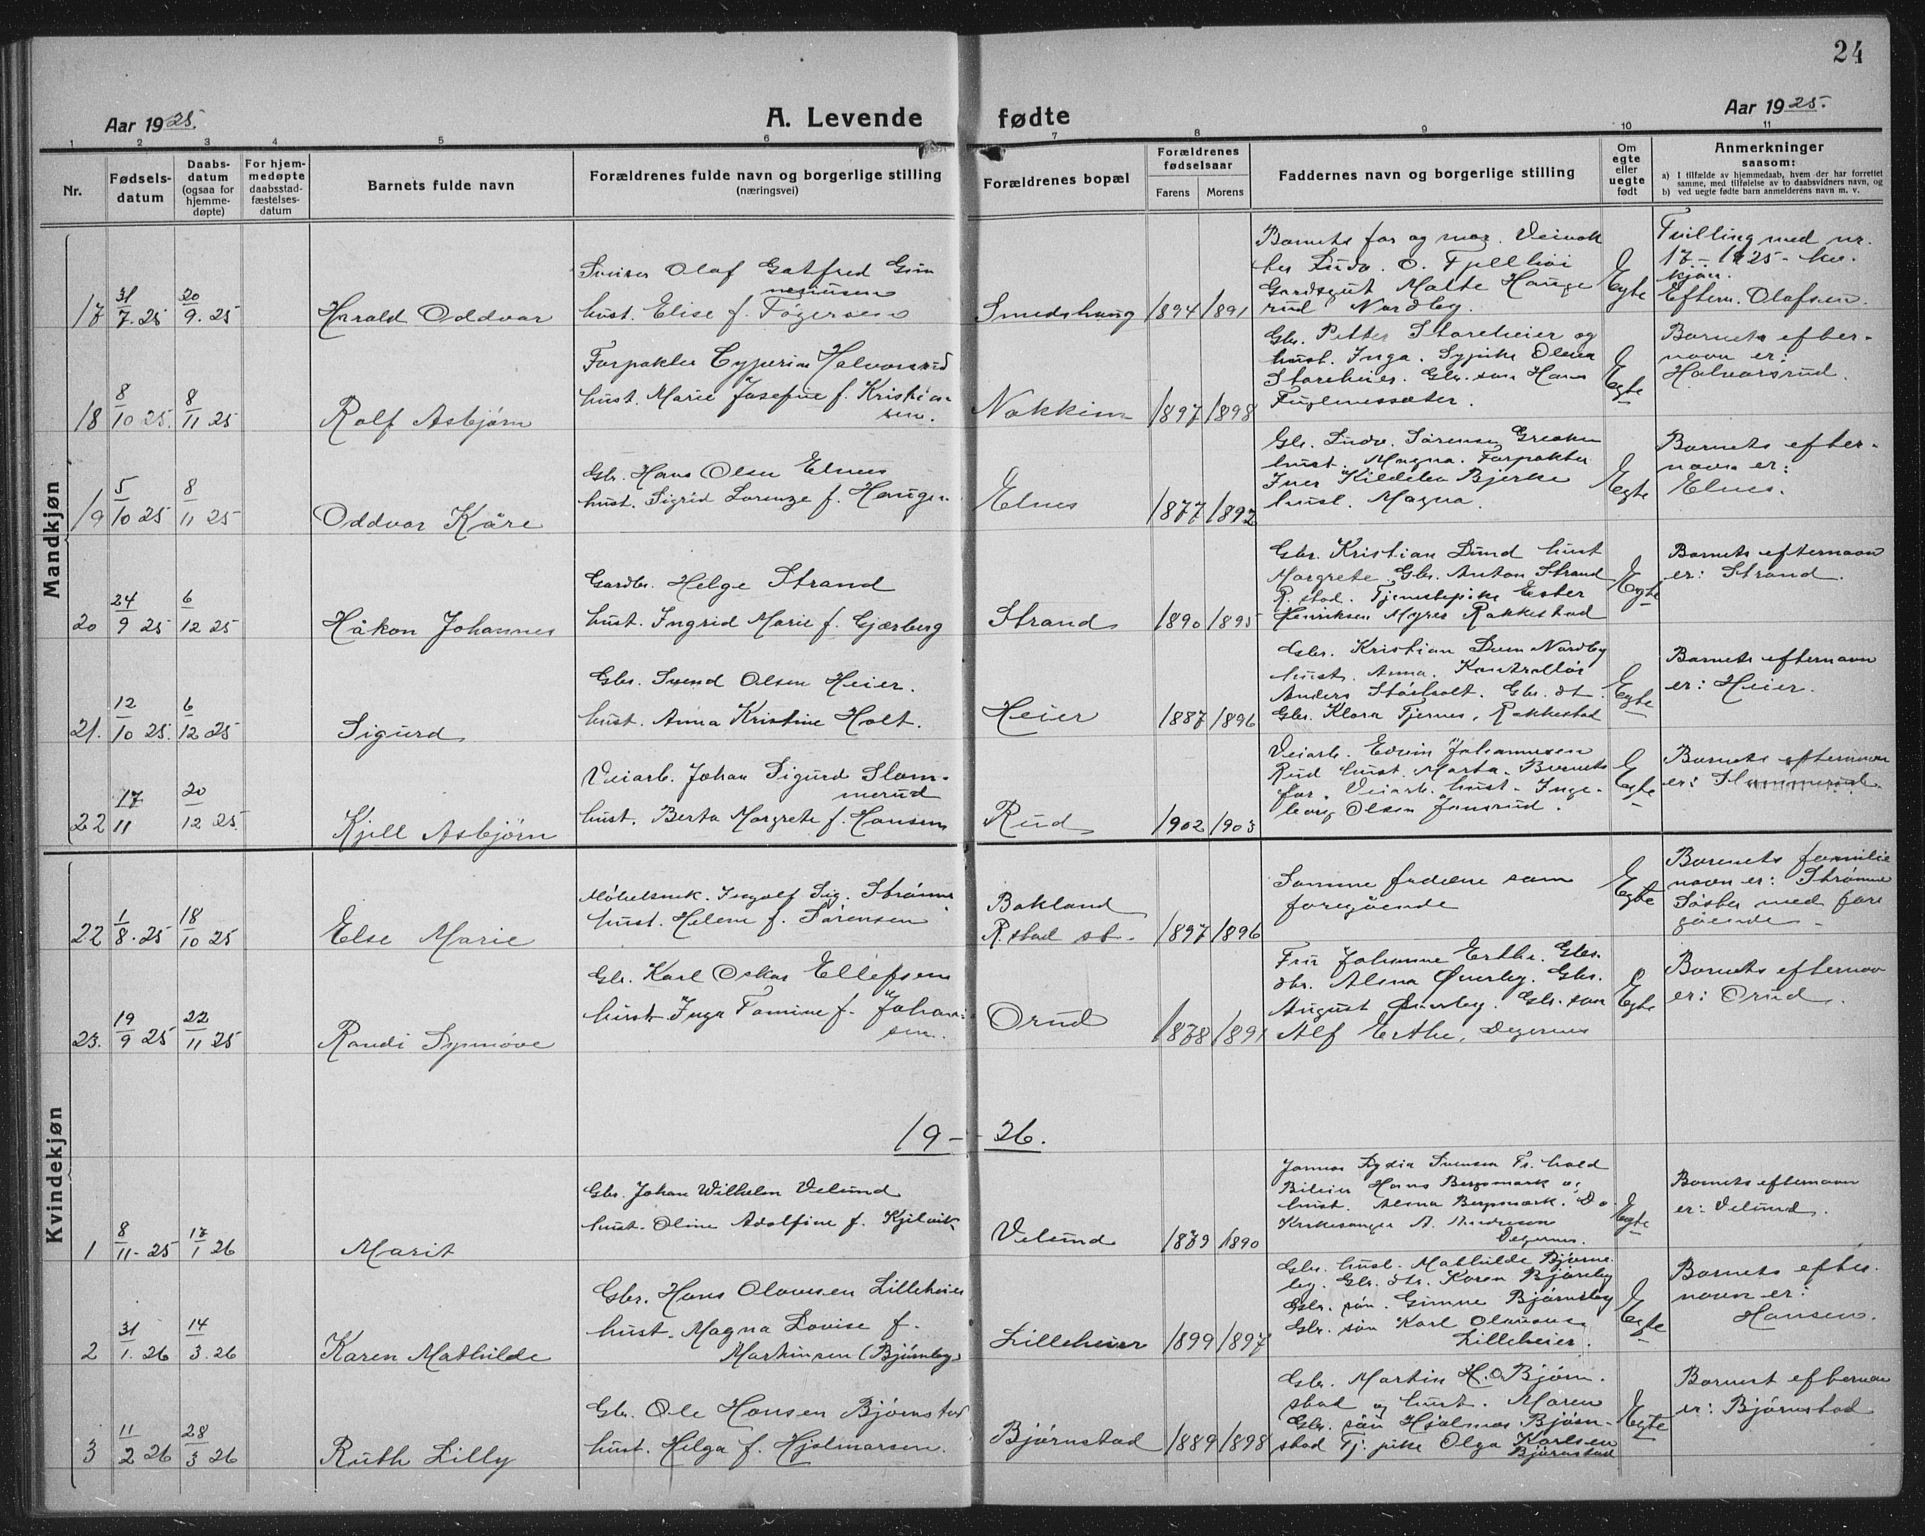 24
Aar 1925.
A. Levende fødte
Aar 1925.
1 2 3 4 5 6 7 8 9 10 11
Nr.
Fødselsdatum
Daabsdatum (ogsaa for hjemmedøpte)
For hjemmedøpte daabsstadfæstelsesdatum
Barnets fulde navn
Forældrenes fulde navn og borgerlige stilling
(næringsvei)
Forældrenes bopæl
Forældrenes fødselsaar
Farens Morens
Faddernes navn og borgerlige stilling
Om egte eller uegte født
Anmerkninger
saasom:
a) I tilfælde av hjemmedaab, hvem der har forrettet samme, med tilføielse av to daabsvidners navn, og
b) ved uegte fødte barn anmelderens navn m. v.
Mandkjøn
17 31/7.25 20/9.25 Harald Oddvar
Olaf Gotfred
hust. Elise f.
Smedshaug 1894 1891
Barnets far og mor.
Nordby.
Egte
Tvilling med nr.
17 - 1925 -
kjøn.
Eftern. Olafsen.
18 8/10 25. 8/11 25 Rolf Asbjørn
Forpakter Halvorsrud
hust. Marie Josefine f. Kristiansen.
1897 1898
Gbr. Petter Storeheier og
hust. Inga.
Storeheier. Gbr. søn Hans
Egte
Barnets efternavn er:
Halvorsrud.
19 5/10 25 8/11 25 Oddvar Kåre
Gbr. Hans Olsen Elnes
hust. Sigrid Lorenze f. Haugen
Elnes 1877 1892
Gbr. Sørensen
hust. Magna. Forpakter
Bjerke
hust. Magna.
Egte
Barnets efternavn er:
Elnes.
20 24/9 25 6/12 25 Håkon Johannes
Gardbr. Helge Strand
hust. Ingrid Marie f. Gjærberg
Strand 1890 1895
Gbr. Kristian Lund hust
Margrete, Gbr. Anton Strand
R. stad. Tjenestepike Ester
Henriksen Myres Rakkestad
Egte
Barnets efternavn
er: Strand.
21. 12/10 25. 6/12 25 Sigurd
Gbr. Svend Olsen Heier.
hust. Anna Kristine Holt.
Heier 1887 1896
Gbr. Kristian Nordby
hust. Anna. Kontrollør
Anders Gbr. dt.
Gbr. Klara Tjernes, Rakkestad
Egte
Barnets efternavn
er: Heier.
22 17/11 20/12 25 Kjell Asbjørn
Veiarb. Johan Sigurd Slommerud
hust. Berta Margrete f. Hansen
Rud 1902 1903
Veiarb. Edvin Johannesen
Rud hust. Marta. Barnets
far. Veiarb. hust. Ingeborg Olsen
Egte
Barnets efternavn
er:
Kvindekjøn
22 1/8.25 18/10 25 Else Marie
Møbelsnek. Ingolf Sig. Strømne
hust. Helene f. Sørensen
Bakland
R. stad st. 1897 1896
Samme faddere som
foregående
Egte
Barnets familie
navn er: Strømne
Søster med foregående
23. 19/9 25 22/11 25 Randi Synnøve
Gbr. Karl Oskar Ellefsen
hust. Inga Tomine f. Johansen.
Orud 1878 1891
Fru Johanne Erthe. Gbr.
dtr. Alma Øverby. Gbr.
August Øverby. Gbr. søn
Alf Erthe, Degernes
Egte
Barnets efternavn
er: Orud.
19 - 26.
1 8/11-25 17/1 26 Marit
Gbr. Johan Wilhelm Velund
hust. Oline Adolfine f. Kjilvik
Velund 1879 1890
Lydia Svensen
Hans Bergsmark og
hust. Alma Bergsmark. Do
Kirkesanger A. Andresen
Degernes.
Egte
Barnets efternavn
er: Velund.
2 31/1.26 14/3.26 Karen Mathilde
Gbr. Hans Olavesen Lilleheier
hust. Magna Lovise f.
Martinsen (Bjørneby)
Lilleheier 1899 1897
Gbr. hust. Mathilde Bjørneby. Gbr. dtr. Karen Bjørneby
Gbr. søn. Bjørneby
Gbr. søn Karl Olavesen
Lilleheier.
Egte
Barnets efternavn er:
Hansen.
3 11/2 26 28/3 26 Ruth Lilly
Gbr. Ole Hansen Bjørnstad
hust. Helga f. Hjalmarsen.
Bjørnstad 1889 1898
Gbr. Martin H. Bjørnstad og hust. Maren
Gbr. søn Hjalmar Bjørnstad Tj. pike Olga Karlsen
Bjørnstad
Egte
Barnet efternavn
er: Bjørnstad